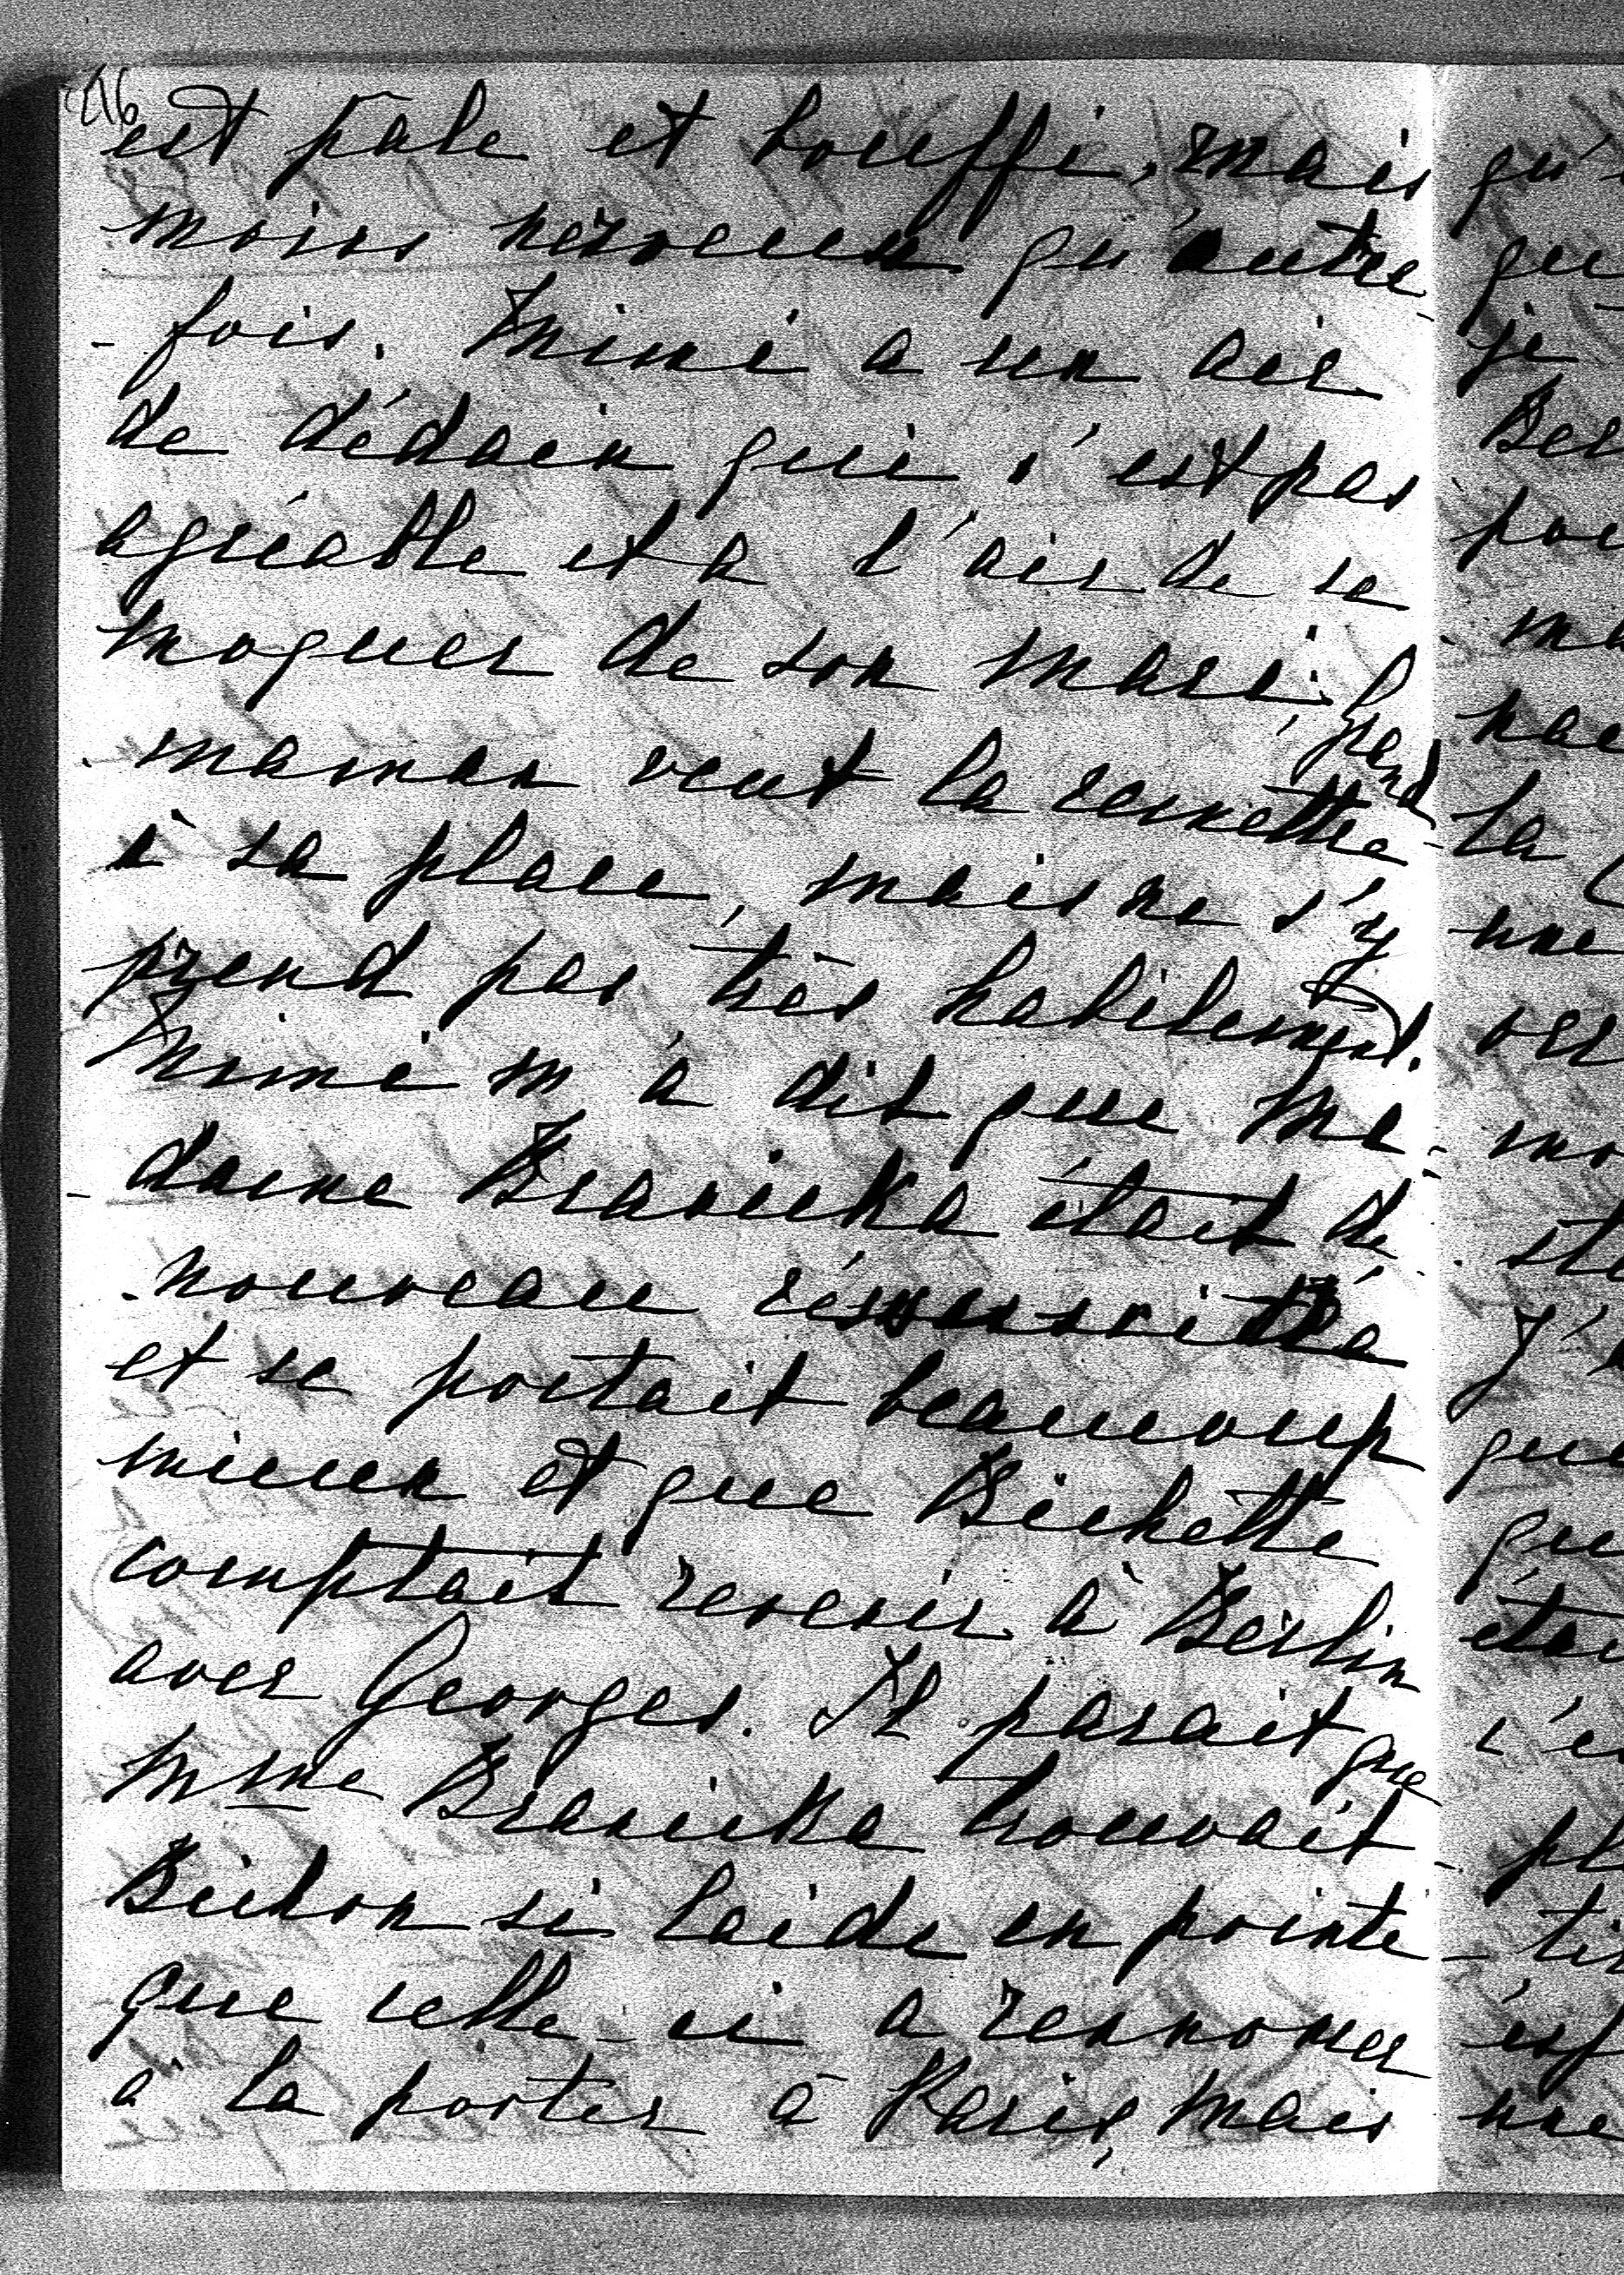 est pâle et bouffi, mais
moins nerveux qu'autre-
-fois. Mimi a un air
de dédain qui n'est pas
agréable et a l'air de se
moquer de son mari; Grand
maman veut la remettre
à sa place, mais ne s'y
prend pas très habilement.
Mimi m'a dit que Ma-
-dame Branicka était de
nouveau réssuscitée
et se portait beaucoup
mieux et que Bichette
comptait revenir à Berlin
avec Georges. Il parait que
Mme Branicka trouvait
Bichon si laide en pointe
que celle-ci a rennoncer
à la porter à Paris, mais